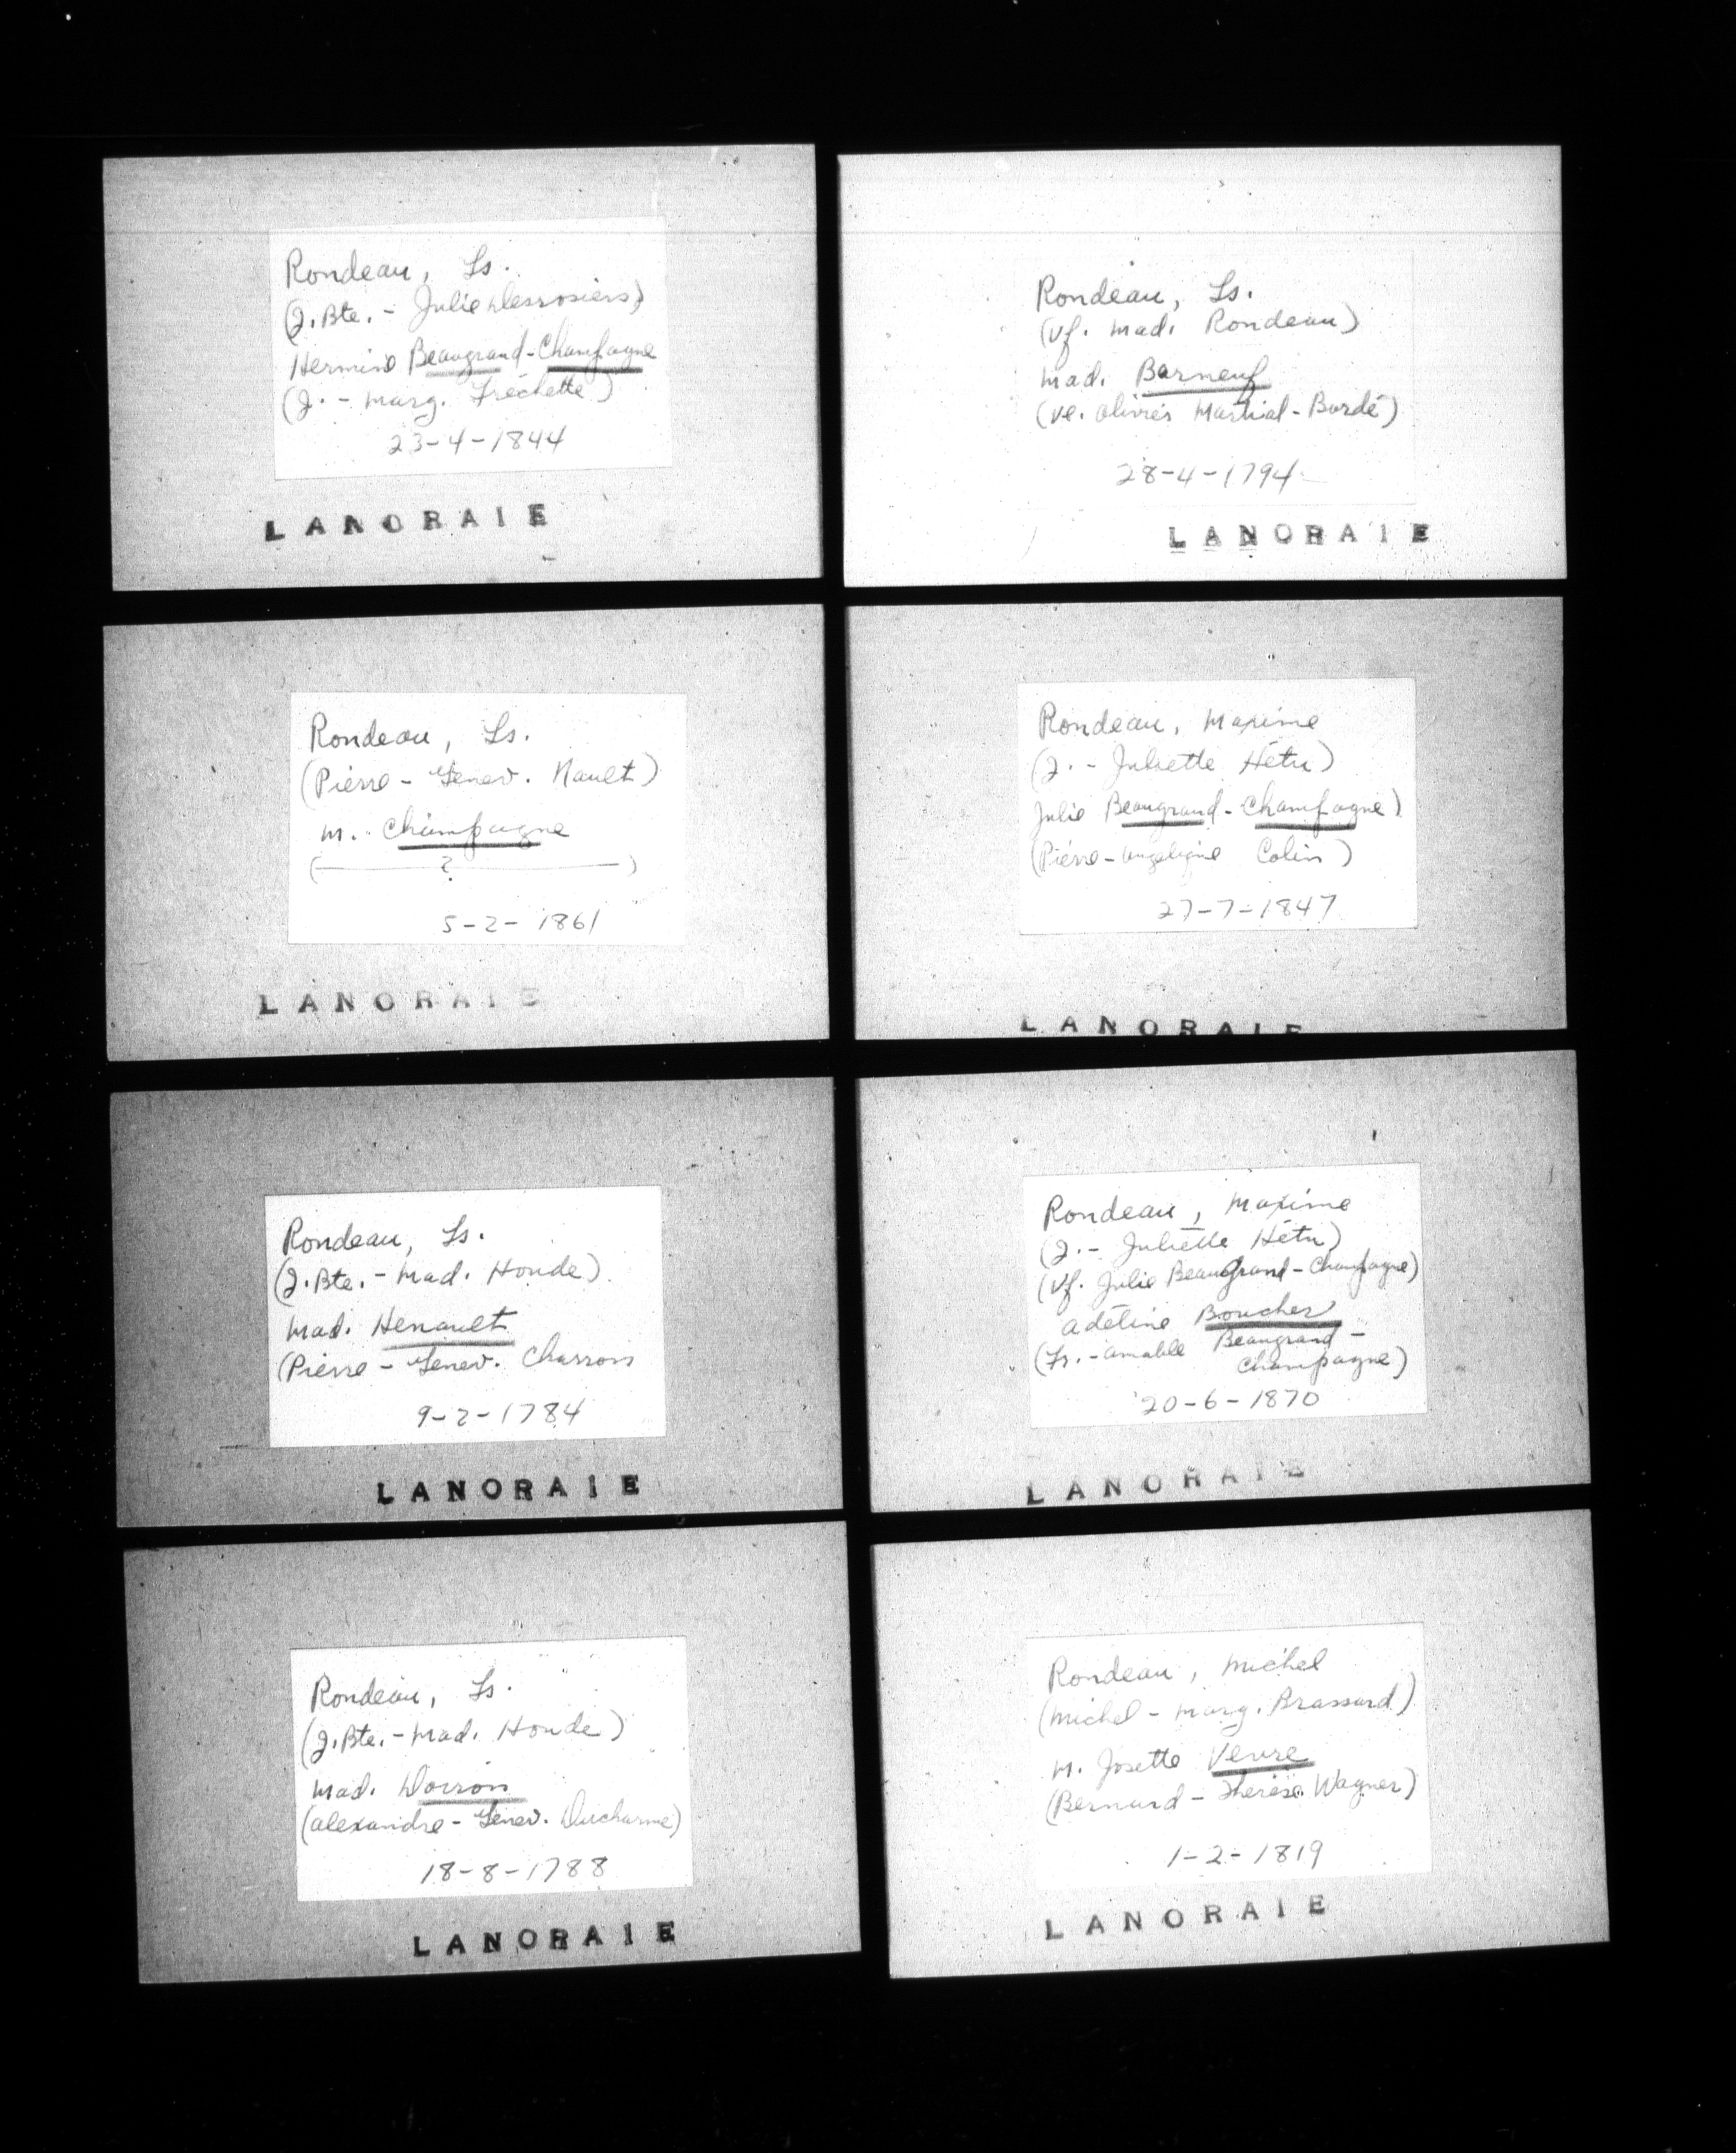 Rondeau, Ls.
(J. Bte. - Julie Desrosiers)
Hermine Beaugrand-Champagne
(J. - Marg. Fréchette)
23-4-1844
LANORAIE
Rondeau, Ls.
(Pierre - Genev. Nault)
M. Champagne
( ? )
5-2-1861
LANORAIE
Rondeau, Ls.
(J. Bte. - Mad. Houde)
Mad. Henault
(Pierre - Genev. Charron
9-2-1784
LANORAIE
Rondeau, Ls.
(J. Bte. - Mad. Houde)
Mad. Doiron
(Alexandre - Genev. Ducharme)
18-8-1788
LANORAIE
Rondeau, Ls.
(Vf. Mad. Rondeau)
Mad. Barneuf
(Ve. Martial-Bardé)
28-4-1794
LANORAIE
Rondeau, Maxime
(J. - Juliette Hétu)
Julie Beaugrand-Champagne)
(Pierre - Angelique Colin)
27-7-1847
LANORAIE
Rondeau, Maxime
(J. - Juliette Hétu)
(Vf. Julie Beaugrand-Champagne)
Adeline Boucher
(Fr. - Amable Beaugrand-
Champagne)
20-6-1870
LANORAIE
Rondeau, Michel
(Michel - Marg. Brassard)
M. Josette Venre
(Bernard - Thérèse Wagner)
1-2-1819
LANORAIE